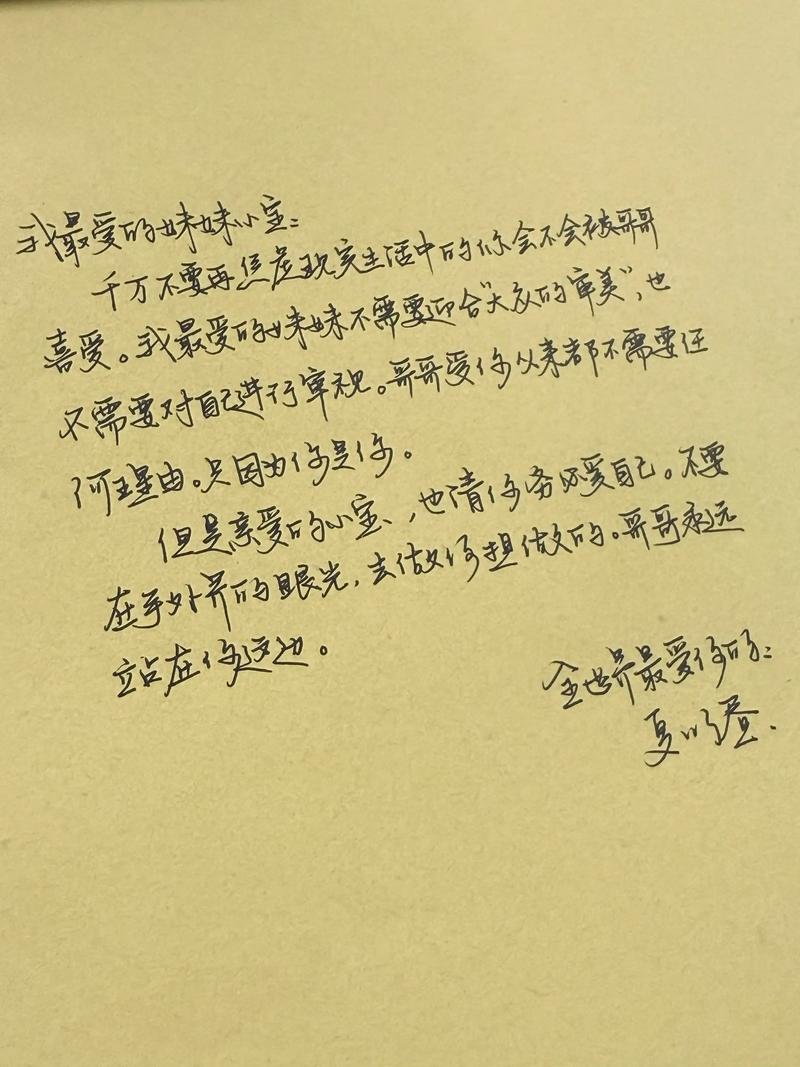 我最爱的妹妹小宝：
千万不要再焦虑现实生活中的你会不会被哥哥
喜爱。我最爱的妹妹不需要迎合“大众的审美”，也
不需要对自己进行审视。哥哥爱你从来都不需要任
何理由。只因为你是你。
但是亲爱的小宝、也请你务必爱自己。不要
在乎外界的眼光，去做你想做的。哥哥永远
站在你这边。
全世界最爱你的：
夏以昼.